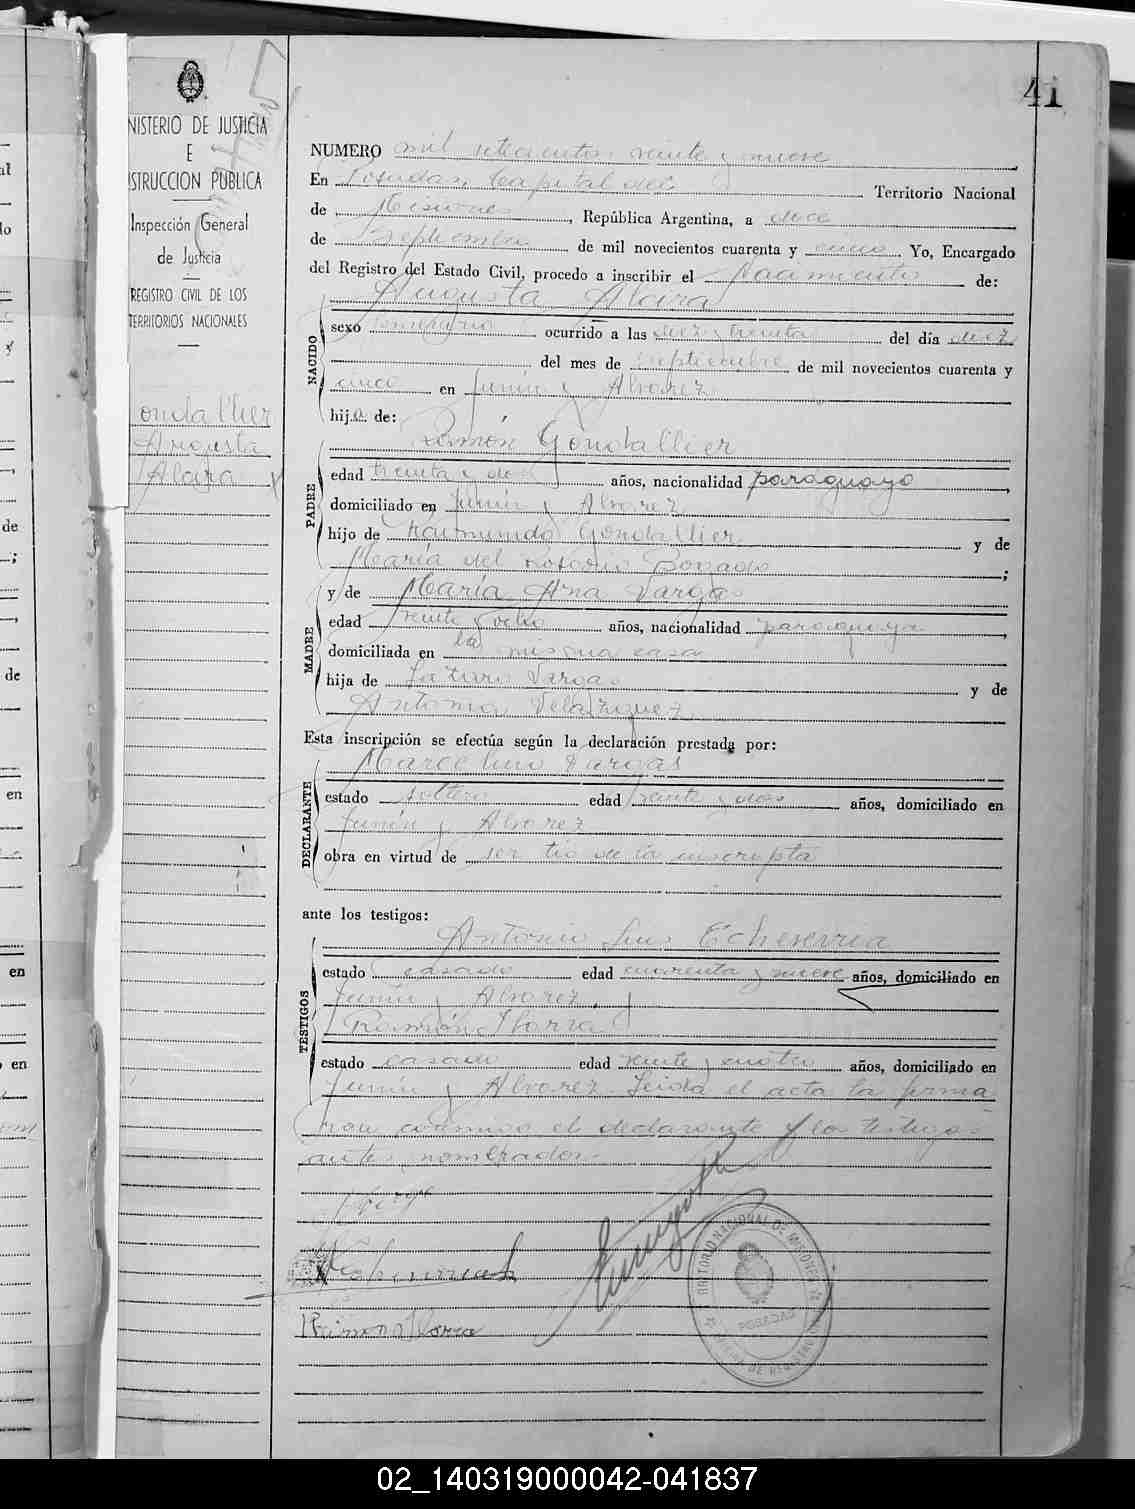 41
MINISTERIO DE JUSTICIA
E
INSTRUCCION PUBLICA
Inspección General
de Justicia
REGISTRO CIVIL DE LOS
TERRITORIOS NACIONALES
ondallier
Augusta
Alcira
NUMERO mil setecientos veinte y nueve
En Posadas, Capital del Territorio Nacional
de Misiones, República Argentina, a doce
de Septiembre de mil novecientos cuarenta y cinco Yo, Encargado
del Registro del Estado Civil, procedo a inscribir el Nacimiento de:
Augusta Alcira
NACIDO
sexo femenino ocurrido a las diez y treinta del día diez
del mes de septiembre de mil novecientos cuarenta y
cinco en Junín y Alvarez
hija de:
Ramón Gondallier
PADRE
edad treinta y dos años, nacionalidad paraguayo
domiciliado en Junín y Alvarez
hijo de Raimundo Gondallier y de
María del Rosario Bogado;
y de María Ana Vargas
MADRE
edad veinte y ocho años, nacionalidad paraguaya
domiciliada en la misma casa
hija de Vargas y de
Antonia Velazquez
Esta inscripción se efectúa según la declaración prestada por:
Marcelino Vargas
DECLARANTE
estado soltero edad veinte y dos años, domiciliado en
Junín y Alvarez
obra en virtud de ser tío de la inscripta
ante los testigos:
Antonio Luis Echeverria
TESTIGOS
estado casado edad cuarenta y nueve años, domiciliado en
Junín y Alvarez
Ramón Ibarra
estado casado edad veinte y cuatro años, domiciliado en
Junín y Alvarez. Leida el acta la firma
ron conmigo el declarante y los testigos
antes nombrados.
Echeverria
Ramon Ibarra
TERRITORIO NACIONAL DE MISIONES
POSADAS
02_140319000042-041837